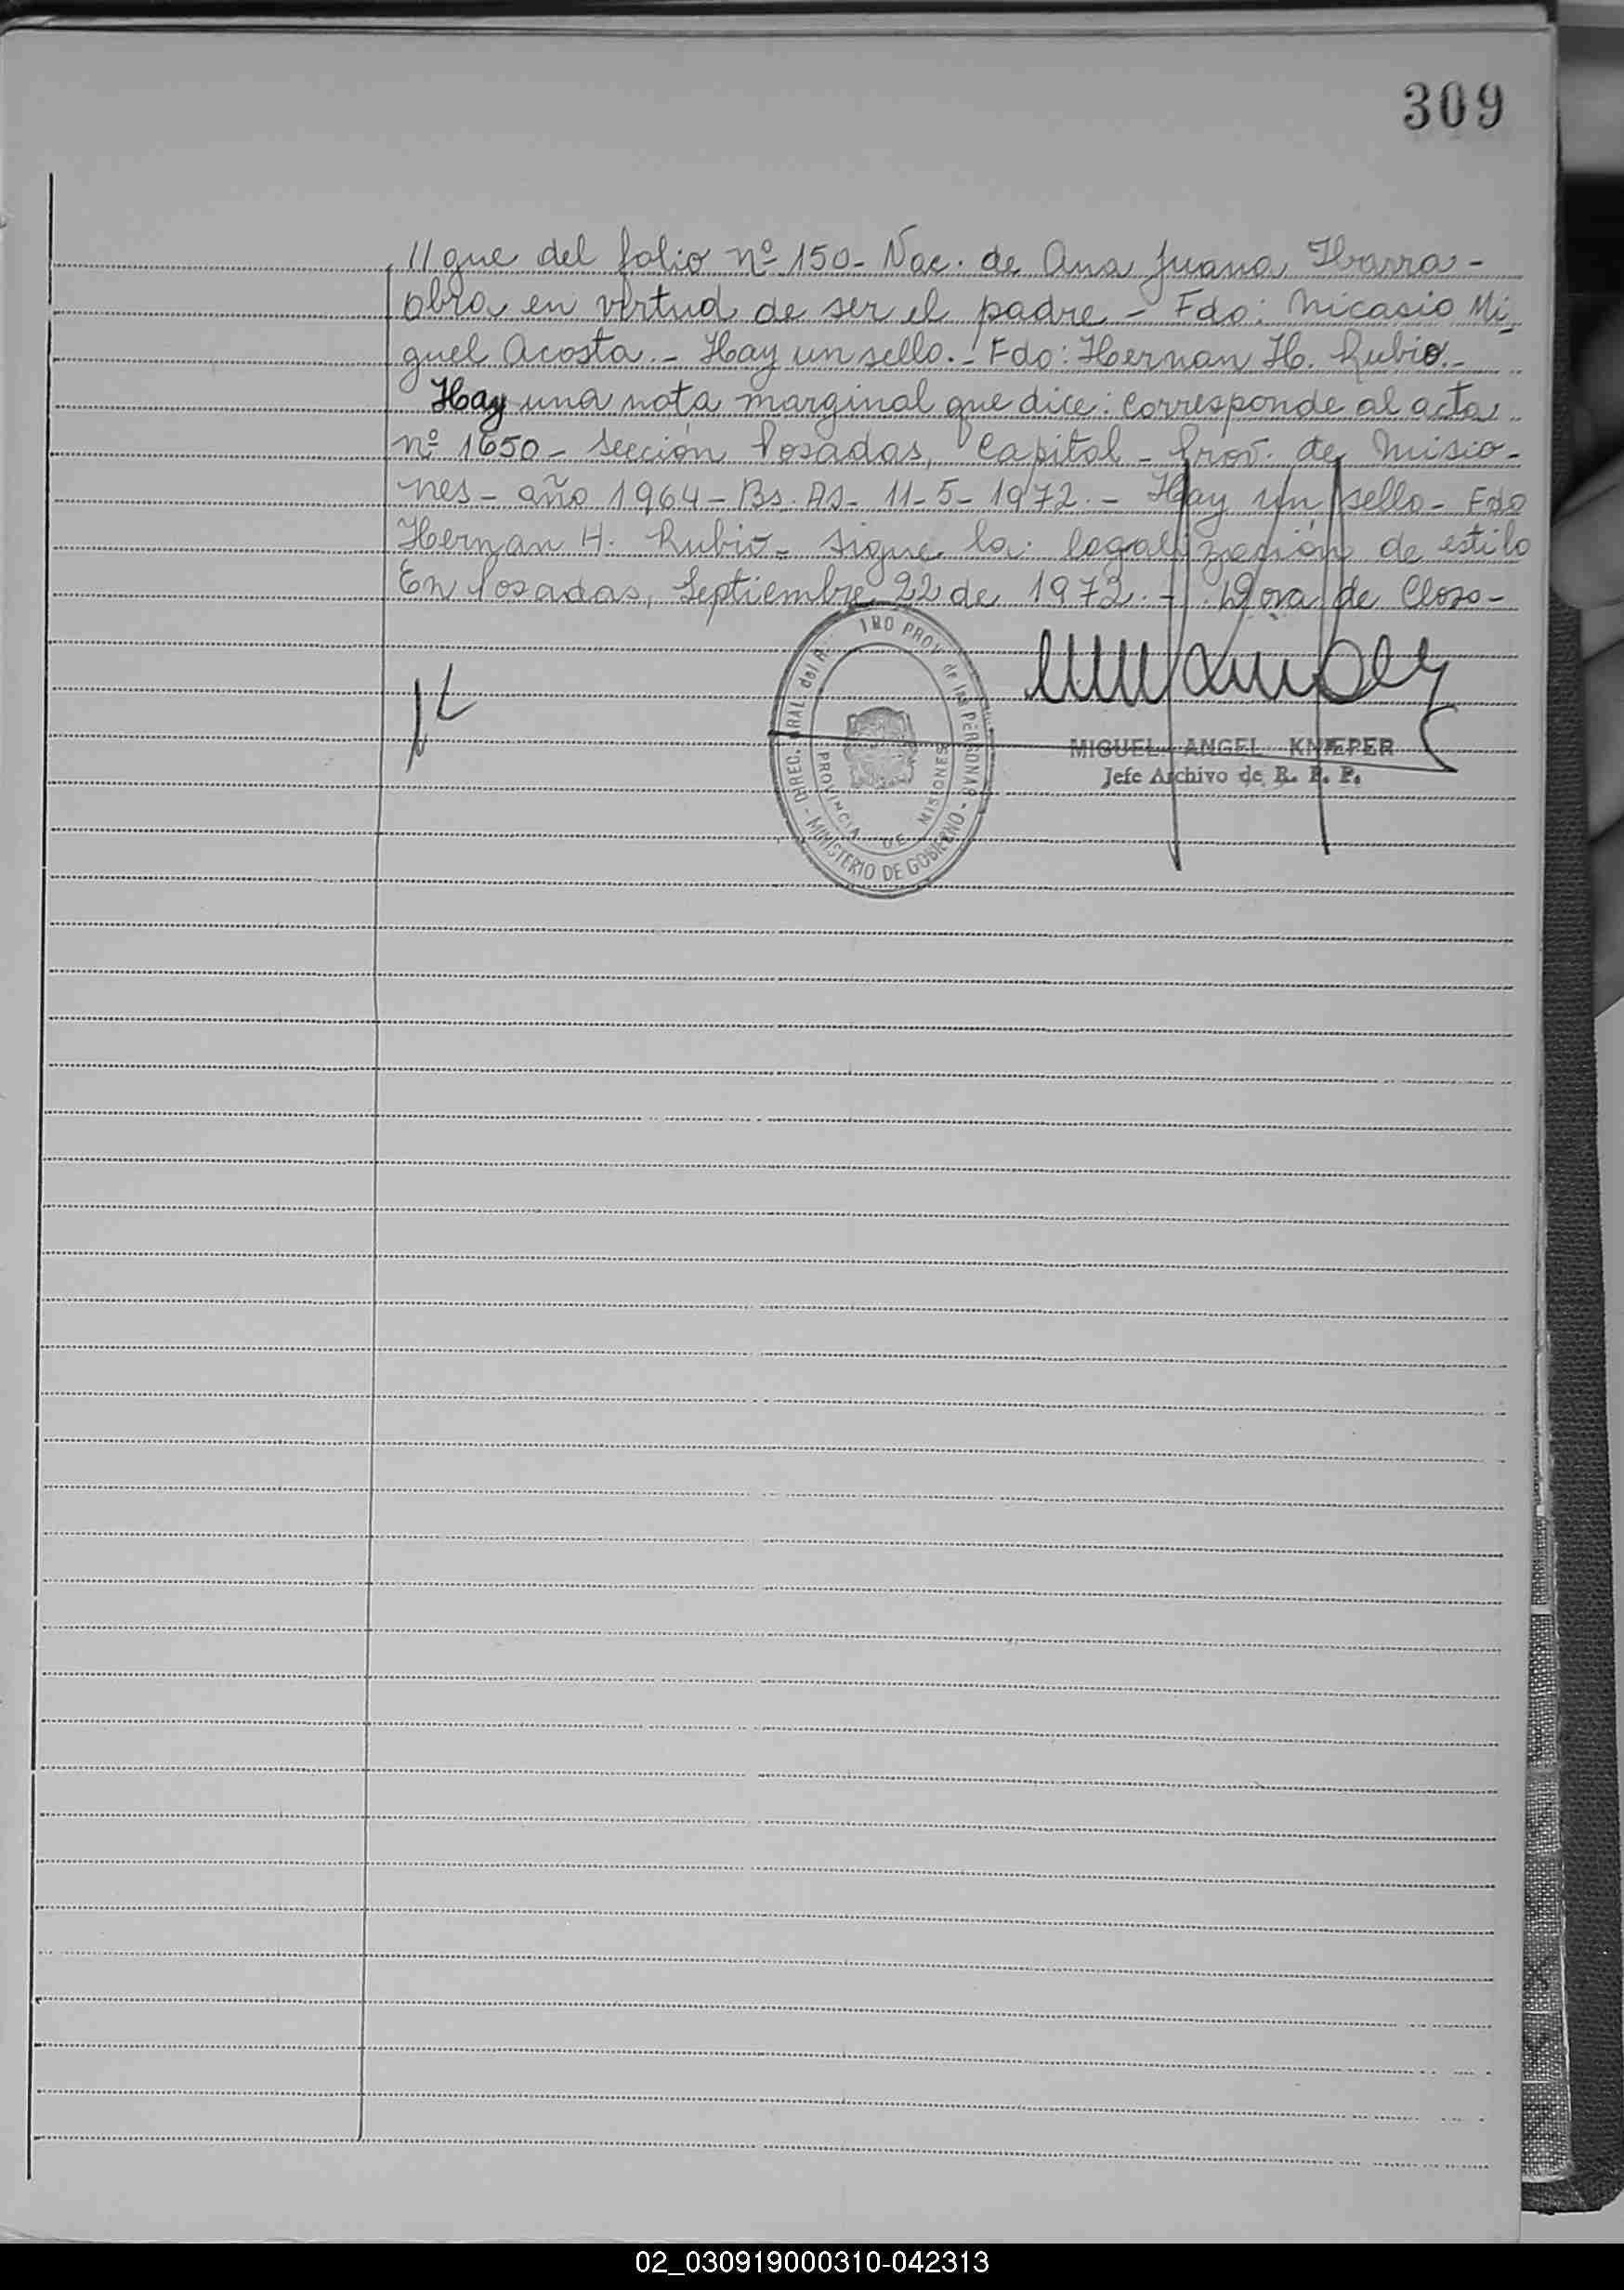 309
//gue del folio nº 150- Nac. de Ana Juana Ibarra-
obra en virtud de ser el padre - Fdo: Nicasio Mi-
guel Acosta.- Hay un sello.- Fdo: Hernan H. Rubio.-
Hay una nota marginal que dice: Corresponde al acta
nº 1650- sección Posadas, Capital - Prov. de Misio-
nes- año 1964- Bs. As- 11-5-1972.- Hay un sello- Fdo
Hernan H. Rubio- sigue la legalización de estilo
En Posadas, Septiembre 22 de 1972.- Dora de Closs-
PROV. de las PERSONAS - MINISTERIO DE GOBIERNO
PROVINCIA DE MISIONES
MIGUEL ANGEL KNÆPER
Jefe Archivo de R. P. P.
02_030919000310-042313